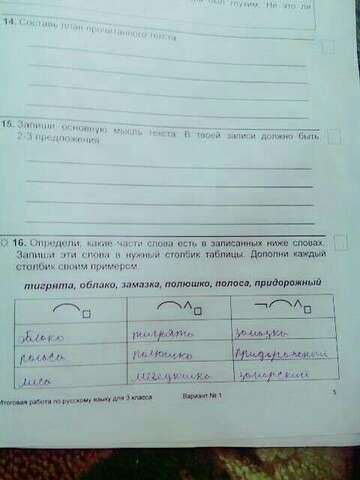 был глухим. Не это ли
14. Составь план прочитанного текста.
15. Запиши основную мысль текста. В твоей записи должно быть
2-3 предложения.
16. Определи, какие части слова есть в записанных ниже словах.
Запиши эти слова в нужный столбик таблицы. Дополни каждый
столбик своим примером.
тигрята, облако, замазка, полюшко, полоса, придорожный
облако тигрята замазка
полоса полюшко придорожный
лиса заморский
Итоговая работа по русскому языку для 3 класса Вариант № 1 5